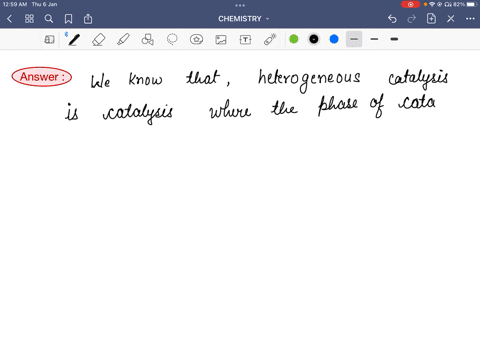 12:59 AM Thu 6 Jan
82%
CHEMISTRY
Answer : We know that, heterogeneous catalysis
is catalysis where the phase of cata